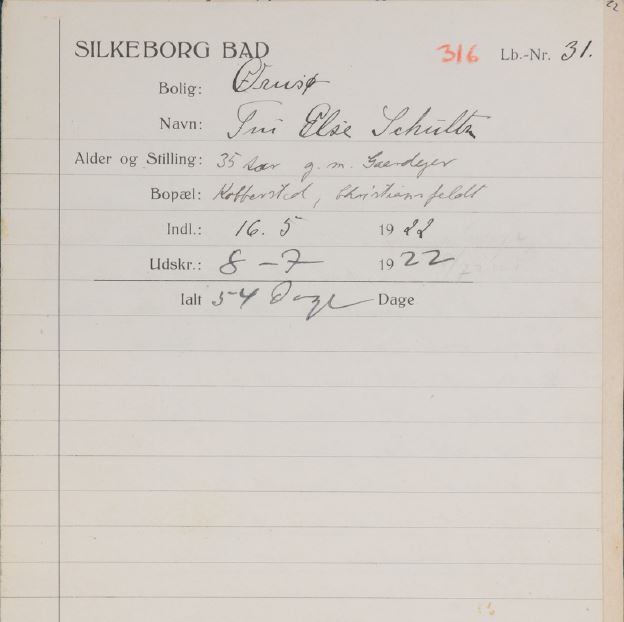 SILKEBORG BAD 316 Lb.-Nr. 31.
Bolig: Ørnsø
Navn: Fru Else Schultz
Alder og Stilling: 35 Aar g. m. Gaardejer
Bopæl: Kobbersted, Christiansfeldt
Indl.: 16. 5 1922
Udskr.: 8 - 7 1922
Ialt 54 Dage Dage